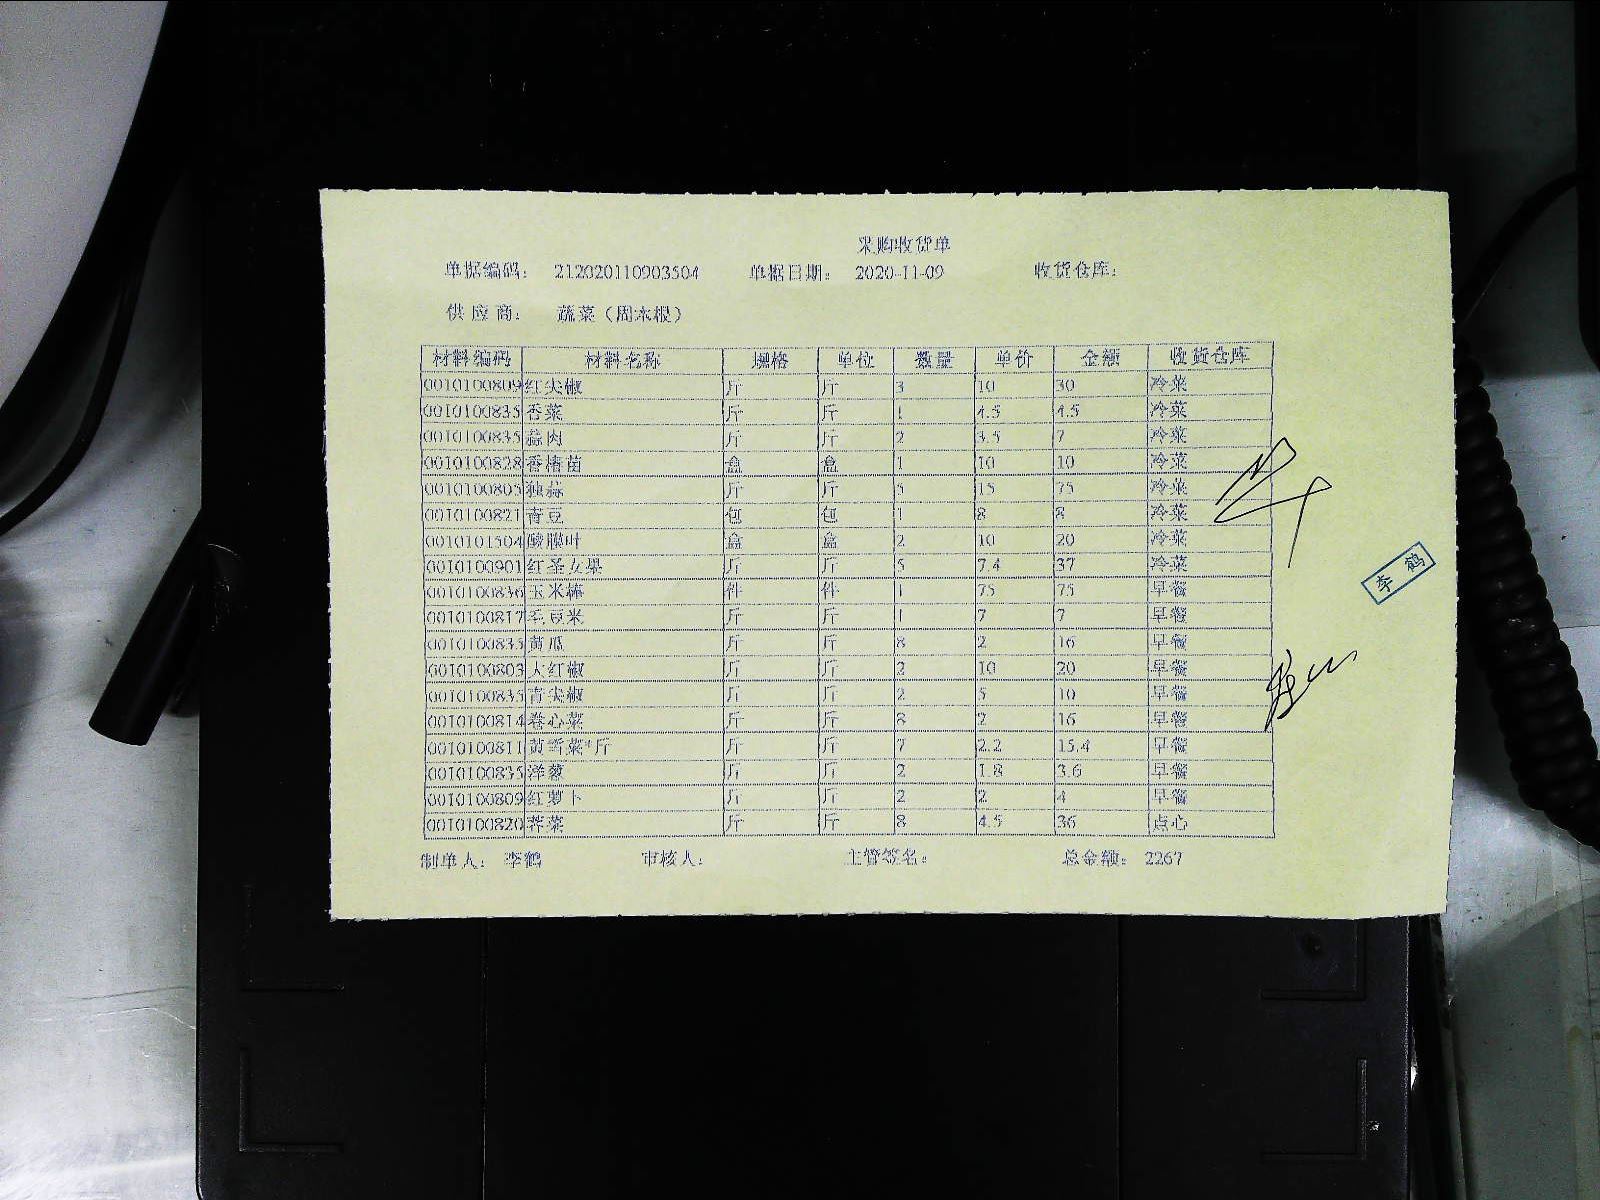 采购收货单
单据编码: 212020110903504 单据日期: 2020-11-09 收货仓库:
供应商: 蔬菜（周永根）
材料编码 材料名称 规格 单位 数量 单价 金额 收货仓库
0010100809 红尖椒 斤 斤 3 10 30 冷菜
0010100835 香菜 斤 斤 1 4.5 4.5 冷菜
0010100835 蒜肉 斤 斤 2 3.5 7 冷菜
0010100828 香椿苗 盒 盒 1 10 10 冷菜
0010100805 独蒜 斤 斤 5 15 75 冷菜
0010100821 青豆 包 包 1 8 8 冷菜
0010101504 酸膜叶 盒 盒 2 10 20 冷菜
0010100901 红圣女果 斤 斤 5 7.4 37 冷菜
0010100836 玉米棒 件 件 1 75 75 早餐
0010100817 毛豆米 斤 斤 1 7 7 早餐
0010100835 黄瓜 斤 斤 8 2 16 早餐
0010100803 大红椒 斤 斤 2 10 20 早餐
0010100835 青尖椒 斤 斤 2 5 10 早餐
0010100814 卷心菜 斤 斤 8 2 16 早餐
0010100811 黄新菜*斤 斤 斤 7 2.2 15.4 早餐
0010100835 洋葱 斤 斤 2 1.8 3.6 早餐
0010100809 红萝卜 斤 斤 2 2 4 早餐
0010100820 荠菜 斤 斤 8 4.5 36 点心
制单人: 李鹤 审核人: 主管签名: 总金额: 2267
李鹤